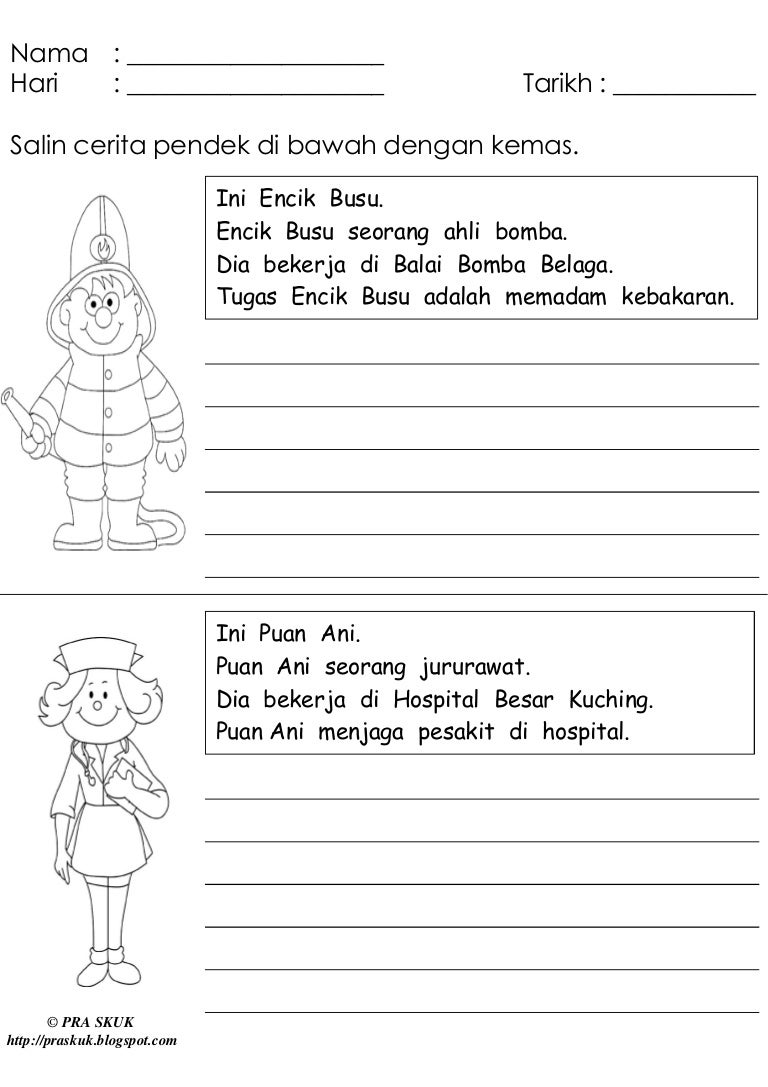 Nama : ____________________
Hari : ____________________ Tarikh : ___________
Salin cerita pendek di bawah dengan kemas.
Ini Encik Busu.
Encik Busu seorang ahli bomba.
Dia bekerja di Balai Bomba Belaga.
Tugas Encik Busu adalah memadam kebakaran.
Ini Puan Ani.
Puan Ani seorang jururawat.
Dia bekerja di Hospital Besar Kuching.
Puan Ani menjaga pesakit di hospital.
© PRA SKUK
http://praskuk.blogspot.com